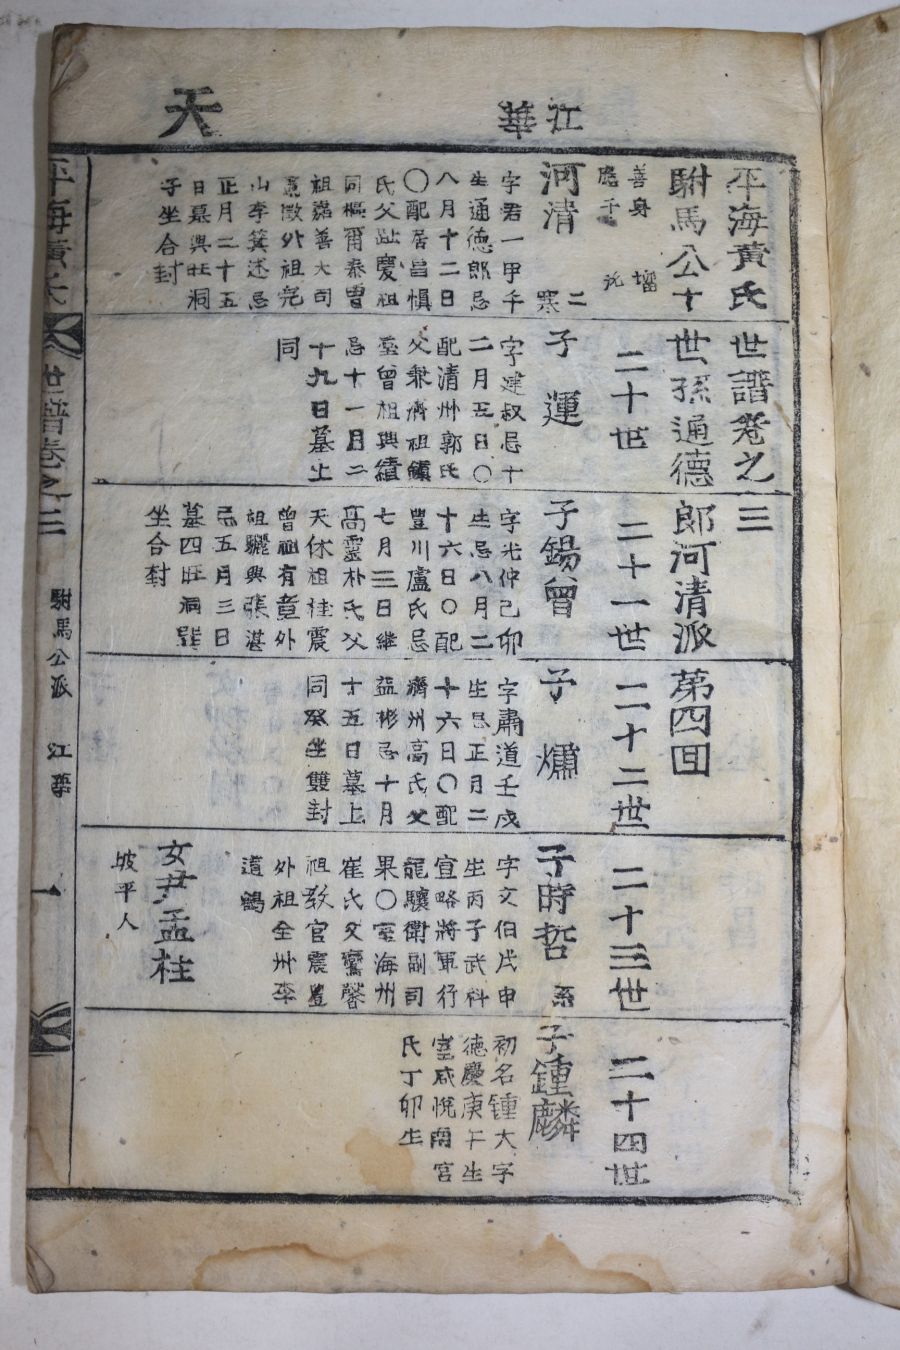 天
江華
平海黃氏世譜卷之三
駙馬公十世孫通德郎河清派第四回
二十世
二十一世
二十二世
二十三世
二十四世
善身
應千
河清
二
寒
字君一甲午
生通德郎忌
八月十二日
〇配居昌愼
氏父趾慶祖
同樞爾泰曾
祖嘉善大司
憲徵外祖完
山李箕述忌
正月二十五
日墓興旺洞
子坐合封
子運
字建叔忌十
二月五日〇
配清州郭氏
父秉濟祖鎭
臺曾祖興績
忌十一月二
十九日墓上
同
子錫曾
字光仲己卯
生忌八月二
十六日〇配
豊川盧氏忌
七月三日継
高靈朴氏父
天休祖桂震
曾祖有章外
祖驪興張湛
忌五月三日
墓四旺洞巽
坐合封
子熽
字肅道壬戌
生忌正月二
十六日〇配
濟州高氏父
益彬忌十月
十五日墓上
同癸坐雙封
子時哲
系
字文伯戊申
生丙子武科
宣略將軍行
龍驤衛副司
果〇室海州
崔氏父鸞馨
祖敎官震豊
外祖全州李
道鶴
女尹孟柱
坡平人
子鍾麟
初名鍾大字
德慶庚午生
室咸悅南宮
氏丁卯生
平海黃氏世譜卷之三
駙馬公派
江華
一